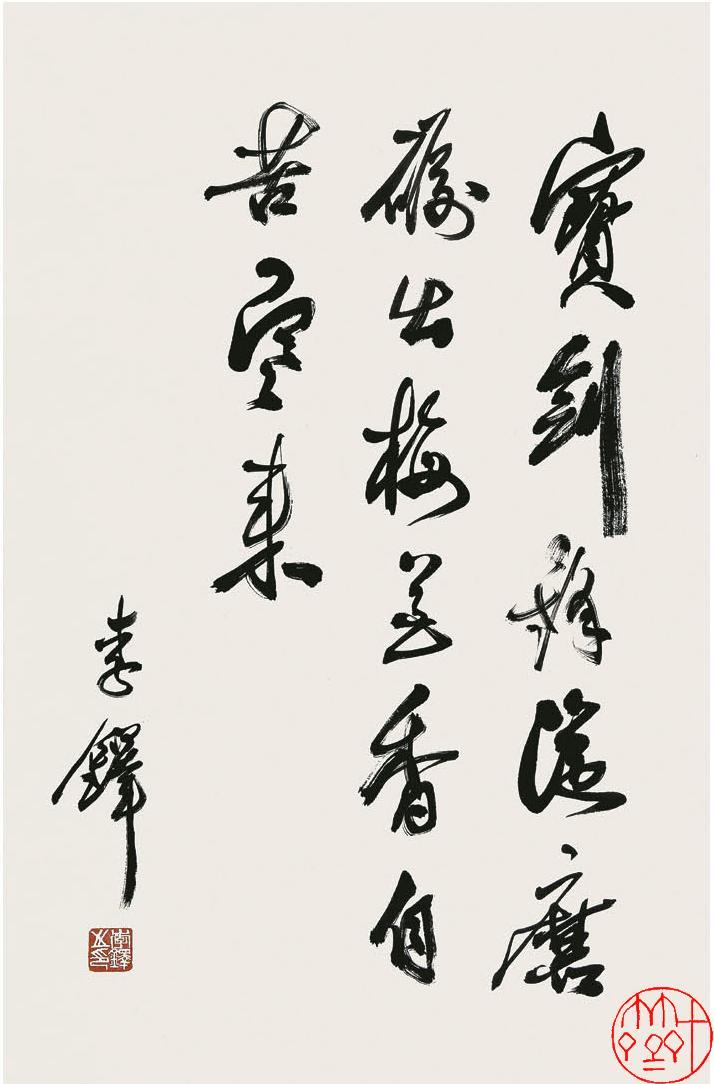 寶劍鋒從磨
礪出梅花香自
苦寒來
李鐸